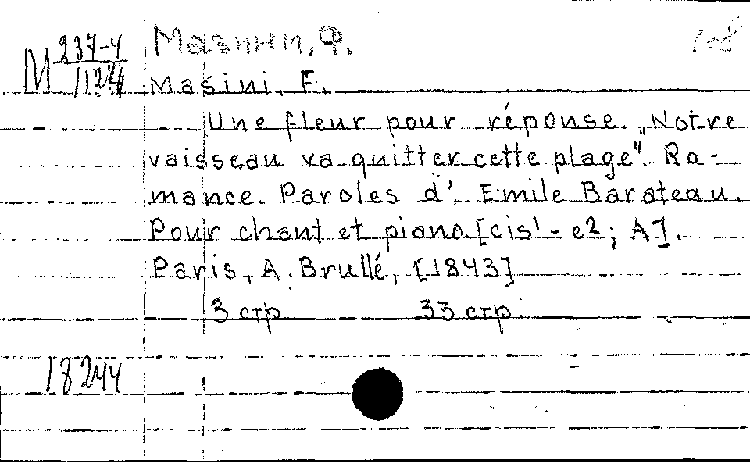 М 237-4
Мазини, Ф.
Masini, F.
Une fleur pour réponse. „Notre
vaisseau va quitter cette plage". Ro-
mance. Paroles d' Emile Barateau.
Pour chant et piano [cis¹ - e2; A].
Paris, A. Brullé, [1843]
3 стр 33 стр
18244